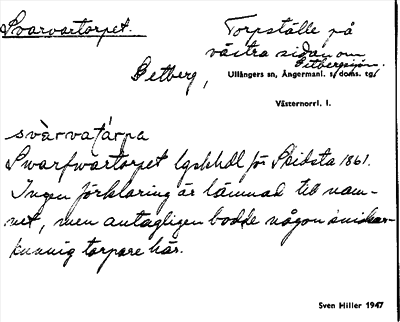 Svarvartorpet.
Torpställe på
västra sidan om
Getbergssjön.
Getberg,
Ullångers sn, Ångermanl. s. doms. tg.
Västernorrl. l.
svàrvatárpa
Swarfwartorpet lgskhdl för Skidsta 1861.
Ingen förklaring är lämnad till nam-
net, men antagligen bodde någon snickar-
kunnig torpare här.
Sven Hiller 1947